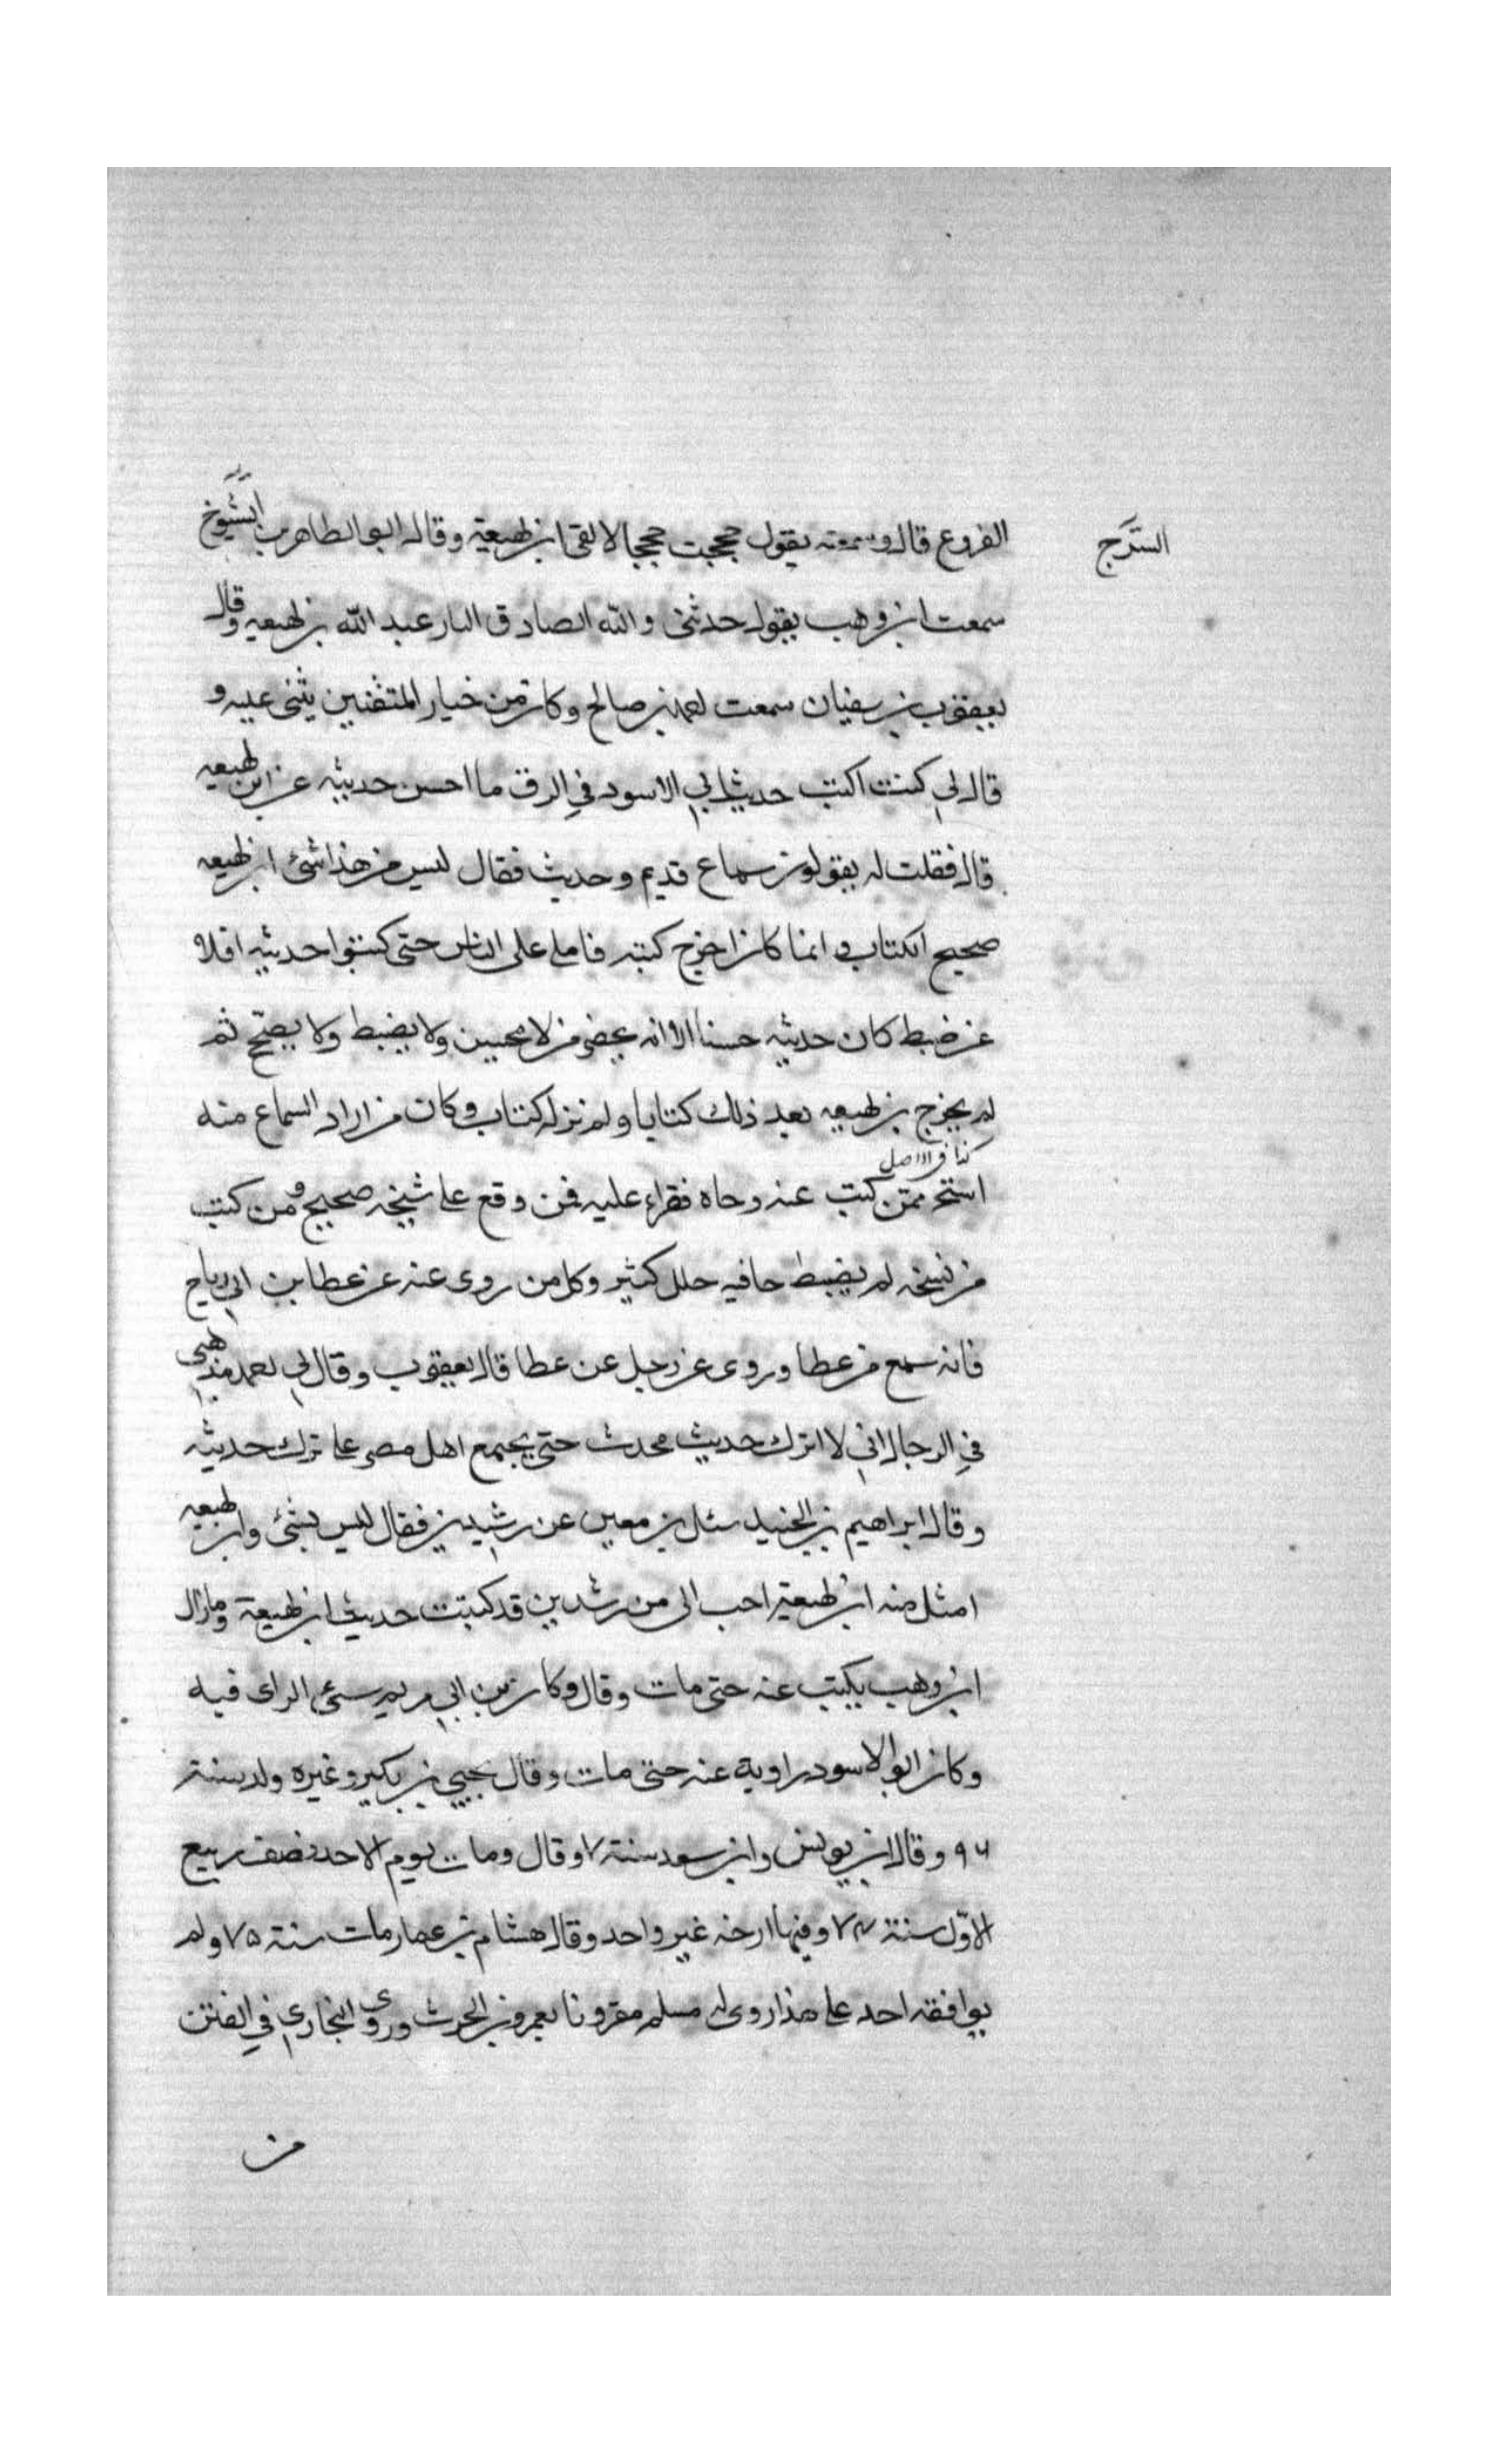 الفروع قال وسمعته يقول حججت حججا لالقى ابن لهيعة وقال ابو الطاهر بن الشيوخ
السرج
سمعت ابن وهب يقول حدثنى والله الصادق البار عبد الله بن لهيعه وقال
يعقوب بن سفيان سمعت احمد بن صالح وكان من خيار المتقنين يثنى عليه و
قال لي كنت اكتب حديث ابي الاسود في الرق ما احسن حديثه عن ابن لهيعه
قال فقلت له يقولون سماع قديم وحديث فقال ليس من هذا شئ ابن لهيعه
صحيح الكتاب وانما كان اخرج كتبه فاملى على الناس حتى كتبوا حديثه املاء
عن ضبط كان حديثه حسنا الا انه يحضر من لا يحسن ولا يضبط ولا يصحح ثم
لم يخرج بن لهيعه بعد ذلك كتابا ولم نر له كتاب وكان من اراد السماع منه
كذا في الاصل
استخر ممن كتب عنه وجاه فقراء عليه فمن وقع على شيخه صحيح ومن كتب
من نسخه لم يضبط جا فيه خلل كثير وكل من روى عنه عن عطا بن ابي رباح
فانه سمع من عطا وروى عن رجل عن عطا قال يعقوب وقال لي احمد مذهبي
في الرجال اني لا اترك حديث محدث حتى يجتمع اهل مصر على ترك حديثه
وقال ابراهيم بن الجنيد سئل بن معين عن رشيدين فقال ليس بشئ وابن لهيعه
امثل منه ابن لهيعة احب الى من رشدين قد كتبت حديث ابن لهيعة وما زال
ابن وهب يكتب عنه حتى مات وقال وكان بن ابي مريم سئ الراى فيه
وكان ابو الاسود راوية عنه حتى مات وقال يحيى بن بكير وغيره ولد سنة
٩٦ وقال ابن يونس وابن سعد سنة ٧ وقال ومات يوم الاحد نصف ربيع
الاول سنة ٧٤ وفيها ارخه غير واحد وقال هشام بن عمار مات سنة ٧٥ ولم
يوافقه احد على هذا روى له مسلم مقرونا بعمرو بن الحرث وروى البخاري في الفتن
من